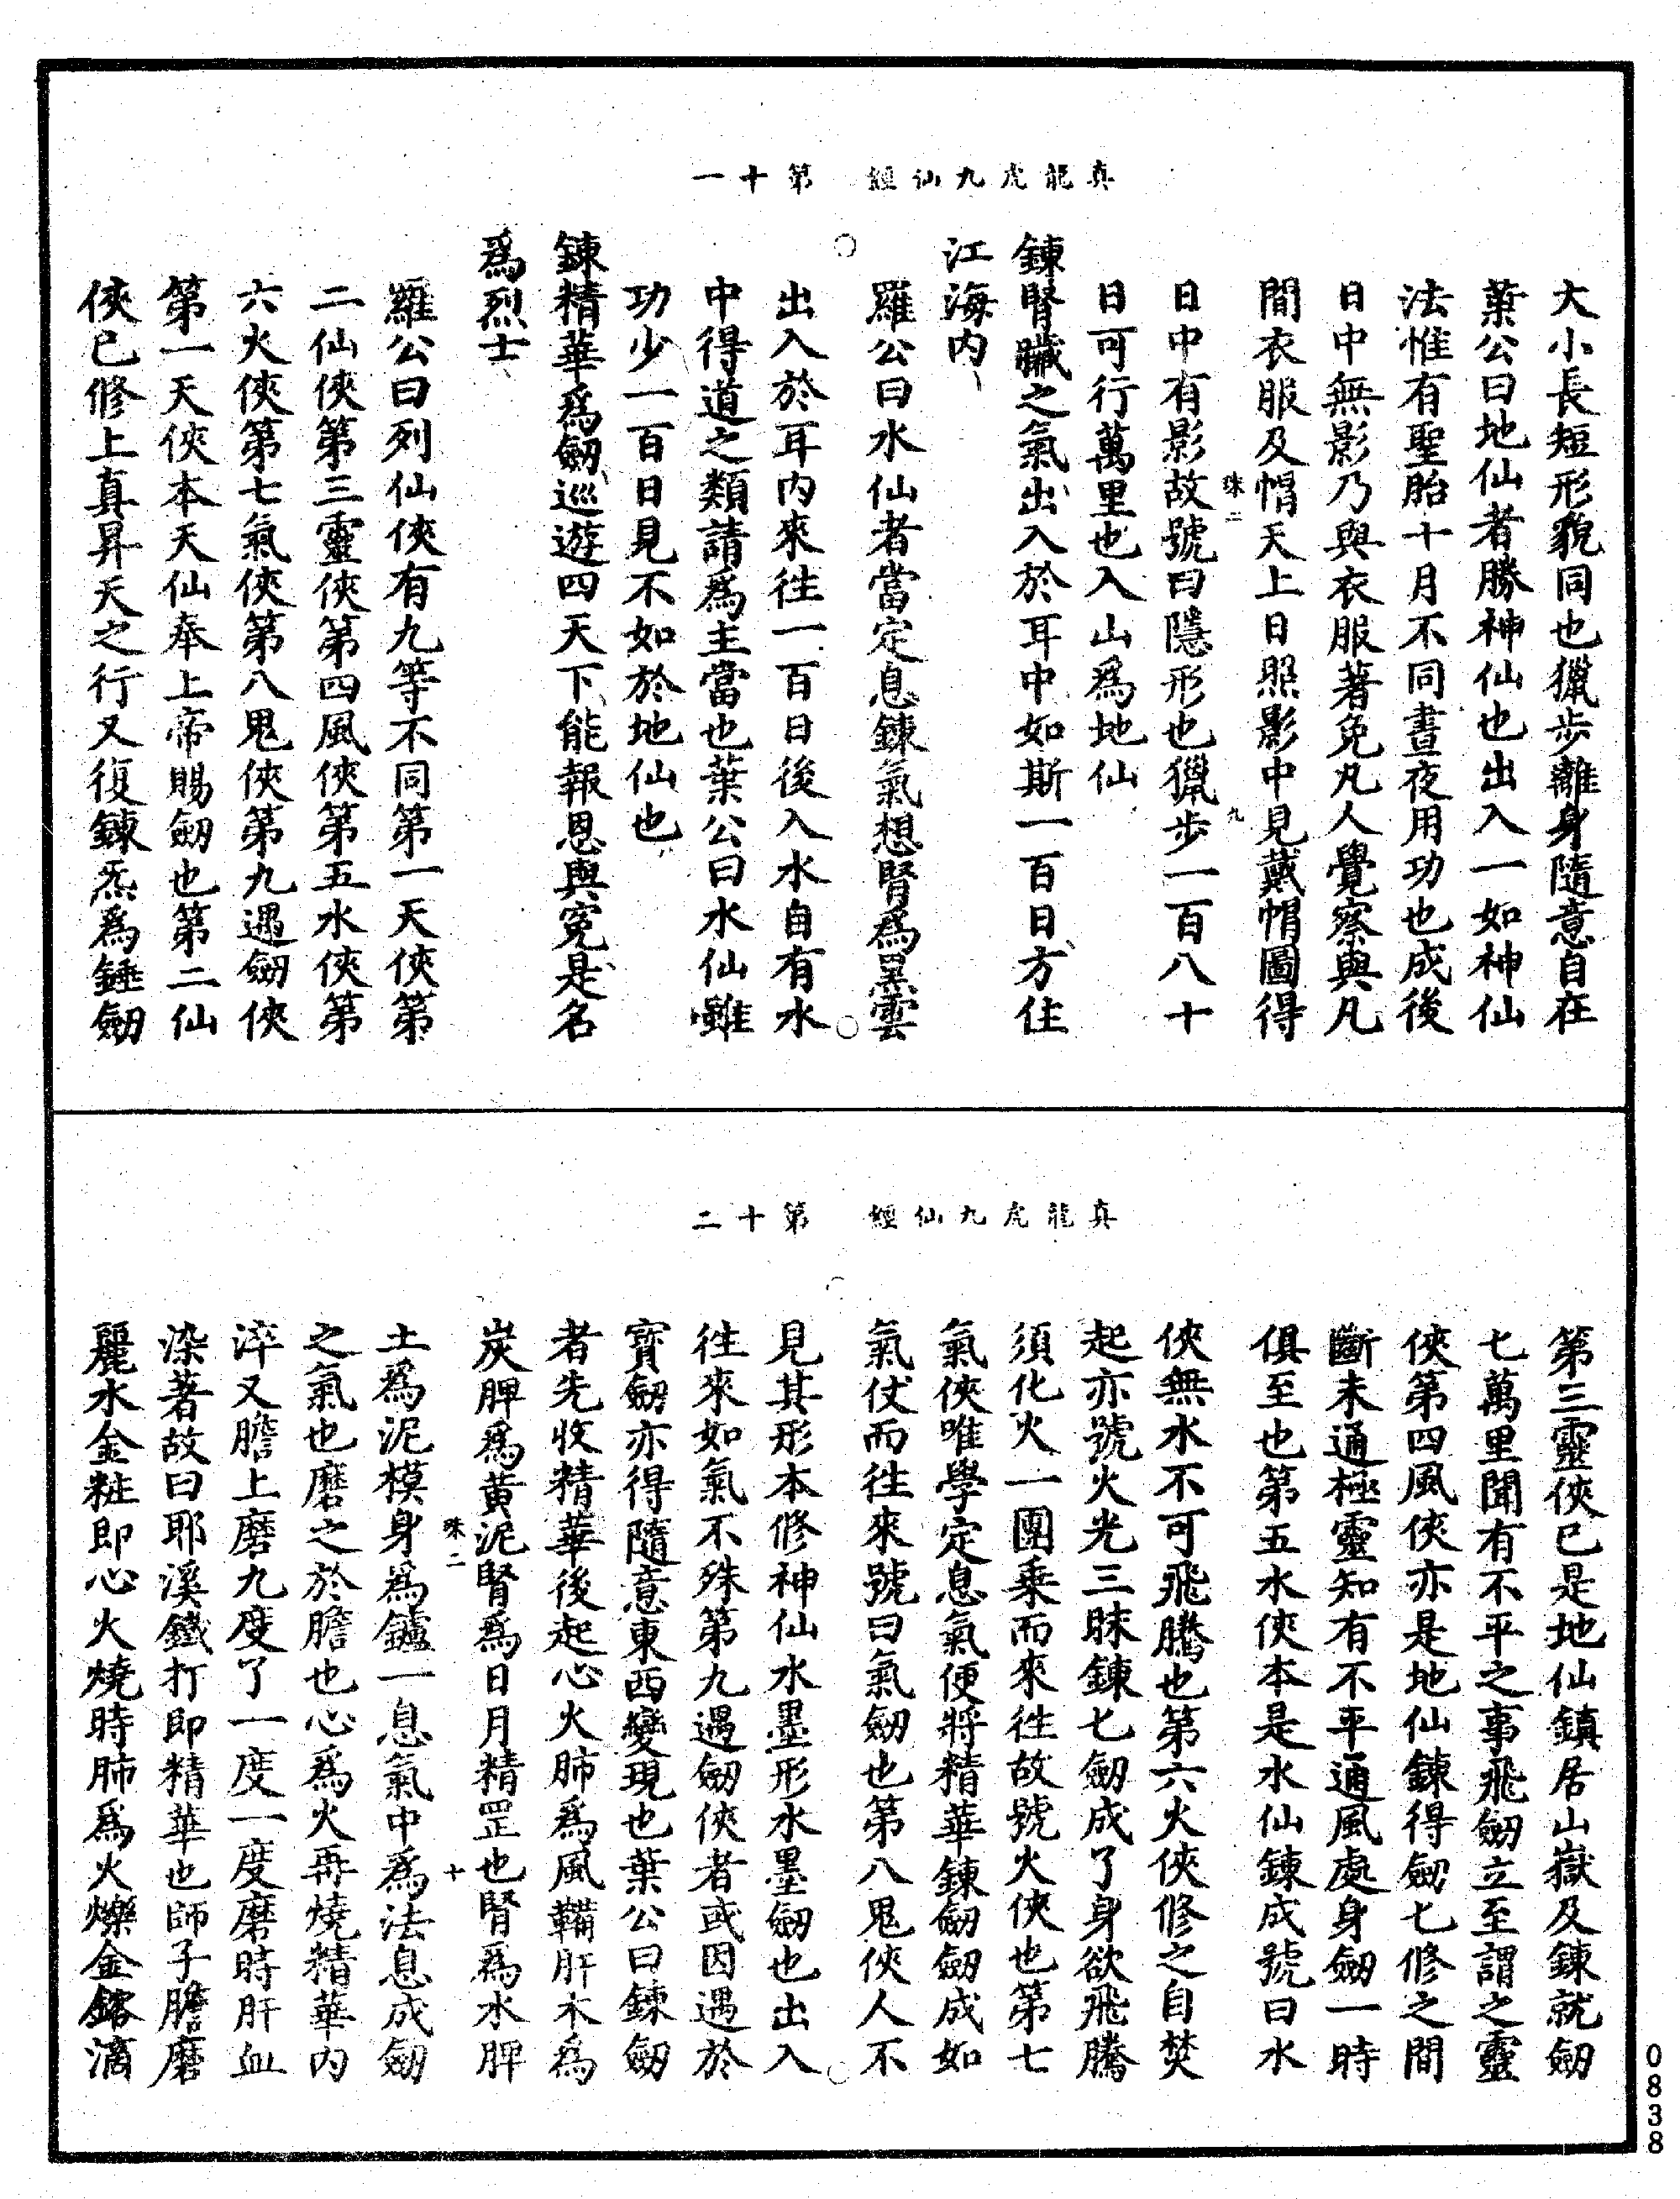 真龍虎九仙經　第十一
大小長短形貌同也獵步離身隨意自在
葉公曰地仙者勝神仙也出入一如神仙
法惟有聖胎十月不同晝夜用功也成後
日中無影乃與衣服著免凡人覺察與凡
間衣服及帽天上日照影中見戴帽圖得
珠二　九
日中有影故號曰隱形也獵步一百八十
日可行萬里也入山爲地仙
鍊腎臟之氣出入於耳中如斯一百日方住
江海内
羅公曰水仙者當定息鍊氣想腎爲黑雲
出入於耳内來往一百日後入水自有水
中得道之類請爲主當也葉公曰水仙雖
功少一百日見不如於地仙也
鍊精華爲劒巡遊四天下能報恩與寃是名
爲烈士
羅公曰列仙俠有九等不同第一天俠第
二仙俠第三靈俠第四風俠第五水俠第
六火俠第七氣俠第八鬼俠第九遇劒俠
第一天俠本天仙奉上帝賜劒也第二仙
俠已修上真昇天之行又復鍊炁爲錘劒
真龍虎九仙經　第十二
第三靈俠已是地仙鎮居山嶽及鍊就劒
七萬里聞有不平之事飛劒立至謂之靈
俠第四風俠亦是地仙鍊得劒七修之間
斷未通極靈知有不平通風處身劒一時
俱至也第五水俠本是水仙鍊成號曰水
俠無水不可飛騰也第六火俠修之自焚
起亦號火光三昧鍊七劒成了身欲飛騰
須化火一團乘而來往故號火俠也第七
氣俠唯學定息氣便將精華鍊劒劒成如
氣仗而往來號曰氣劒也第八鬼俠人不
見其形本修神仙水墨形水墨劒也出入
往來如氣不殊第九遇劒俠者或因遇於
寳劒亦得隨意東西變現也葉公曰鍊劒
者先收精華後起心火肺爲風鞴肝木爲
炭脾爲黄泥腎爲日月精罡也腎爲水脾
珠二　十
土爲泥模身爲鑪一息氣中爲法息成劒
之氣也磨之於膽也心爲火再燒精華内
淬又膽上磨九度了一度一度磨時肝血
染著故曰耶溪鐵打即精華也師子膽磨
麗水金粧即心火燒時肺爲火爍金鎔滴
0838